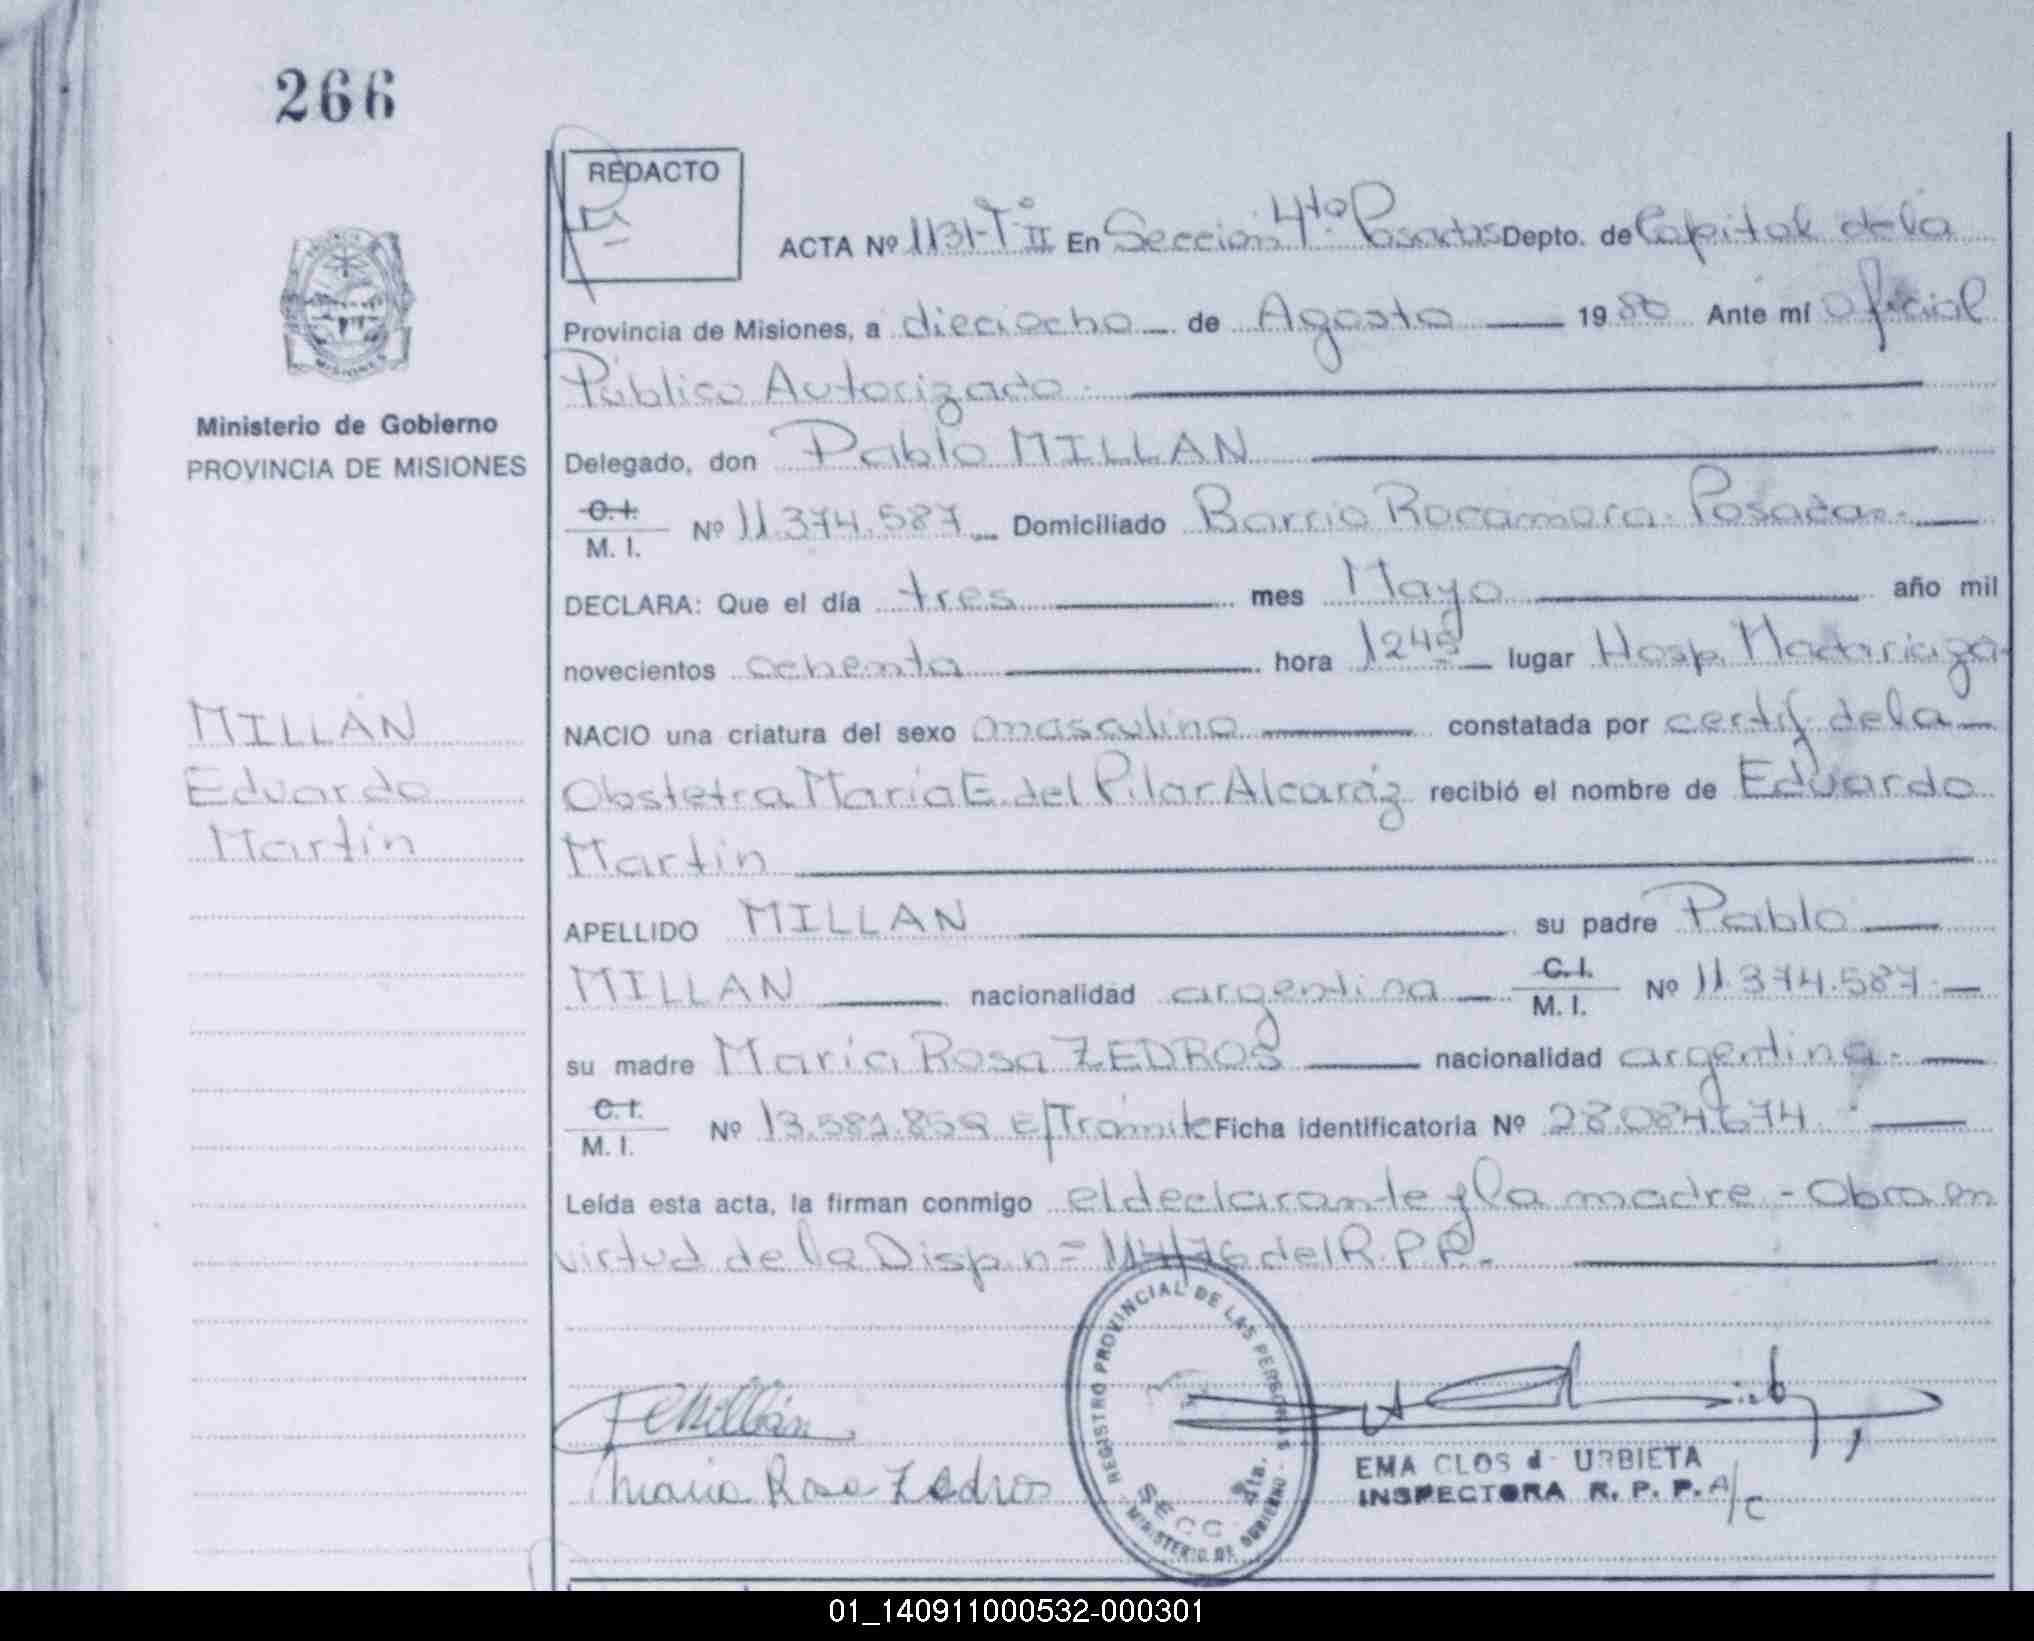 266
REDACTO
ACTA Nº 1131-Tº II En Sección 4ta. Posadas Depto. de Capital de la
Provincia de Misiones, a dieciocho de Agosto 1980 Ante mí Oficial
Público Autorizado.
Ministerio de Gobierno
PROVINCIA DE MISIONES
Delegado, don Pablo MILLAN
C. I.
M. I. Nº 11.374.587 Domiciliado Barrio Rocamora. Posadas.
DECLARA: Que el día tres mes Mayo año mil
novecientos ochenta hora 1245 lugar Hosp. Madariaga
MILLAN
Eduardo
Martín
NACIO una criatura del sexo masculino constatada por certif. de la
Obstetra María E. del Pilar Alcaráz recibió el nombre de Eduardo
Martín
APELLIDO MILLAN su padre Pablo
MILLAN nacionalidad argentina C. I. M. I. Nº 11.374.587.
su madre María Rosa ZEDROS nacionalidad argentina.
C. I.
M. I. Nº E/Trámite Ficha identificatoria Nº 28.084.674.
Leída esta acta, la firman conmigo el declarante y la madre - Obra en
virtud de la Disp. nº 114/76 del R.P.P.
REGISTRO PROVINCIAL DE LAS PERSONAS
SECC. 4ta.
MINISTERIO DE GOBIERNO
Maria Rosa Zedros
EMA CLOS d URBIETA
INSPECTORA R. P. P. A/C
01_140911000532-000301